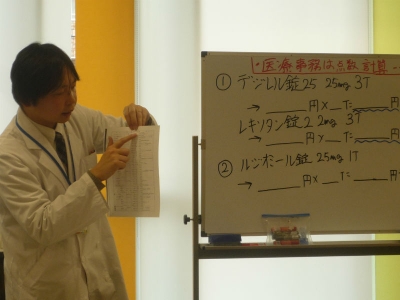 ・医療事務は点数計算・・
① デジレル錠25 25mg 3T
→ ＿＿＿円×＿T=＿＿＿円
レキソタン錠2 2mg 3T
→ ＿＿＿円×＿T=＿＿＿円
② ルジオミール錠 25mg 1T
→ ＿＿＿円×＿T=＿＿＿円